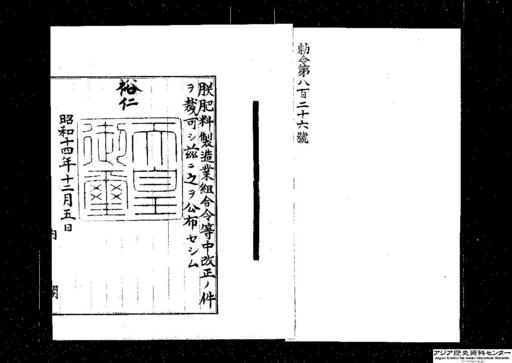 勅令第八百二十六號
朕肥料製造業組合令等中改正ノ件
ヲ裁可シ茲ニ之ヲ公布セシム
裕仁
天皇
御璽
昭和十四年十二月五日
内閣
アジア歴史資料センター
Japan Center for Asian Historical Records